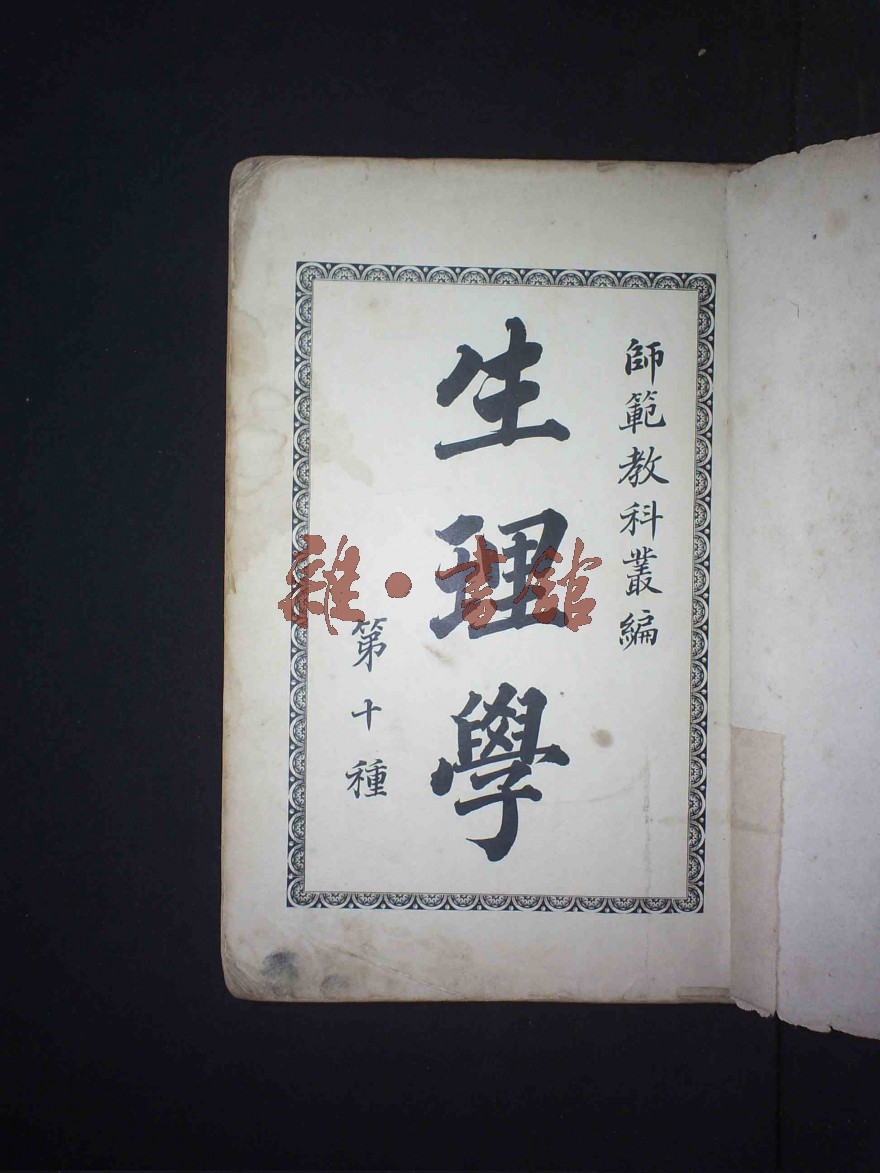 師範教科叢編
生理學
第十種
雜·書館